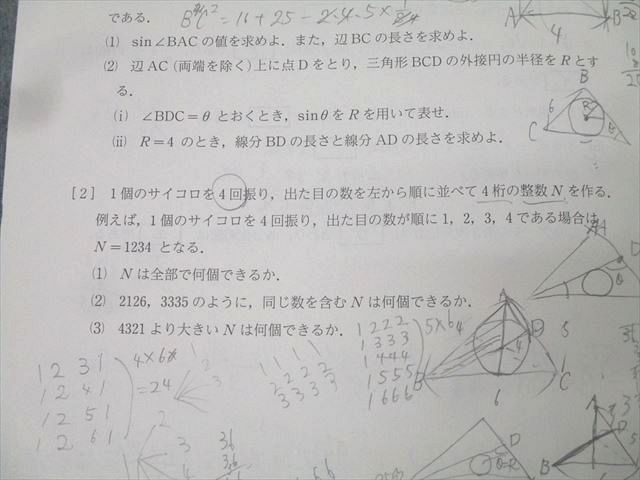 である.
(1) sin∠BACの値を求めよ. また, 辺BCの長さを求めよ.
(2) 辺AC(両端を除く)上に点Dをとり, 三角形BCDの外接円の半径をRとす
る.
(i) ∠BDC=θ とおくとき, sinθをRを用いて表せ.
(ii) R=4 のとき, 線分BDの長さと線分ADの長さを求めよ.
[2] 1個のサイコロを4回振り, 出た目の数を左から順に並べて4桁の整数Nを作る.
例えば, 1個のサイコロを4回振り, 出た目の数が順に1, 2, 3, 4である場合は
N=1234 となる.
(1) Nは全部で何個できるか.
(2) 2126, 3335のように, 同じ数を含むNは何個できるか.
(3) 4321より大きいNは何個できるか.
1222
1333
1444
1555
1666
1 2 3 1
1 2 4 1
1 2 5 1
1 2 6 1
=24
1111
2222
3333
A
B
C
D
5
6